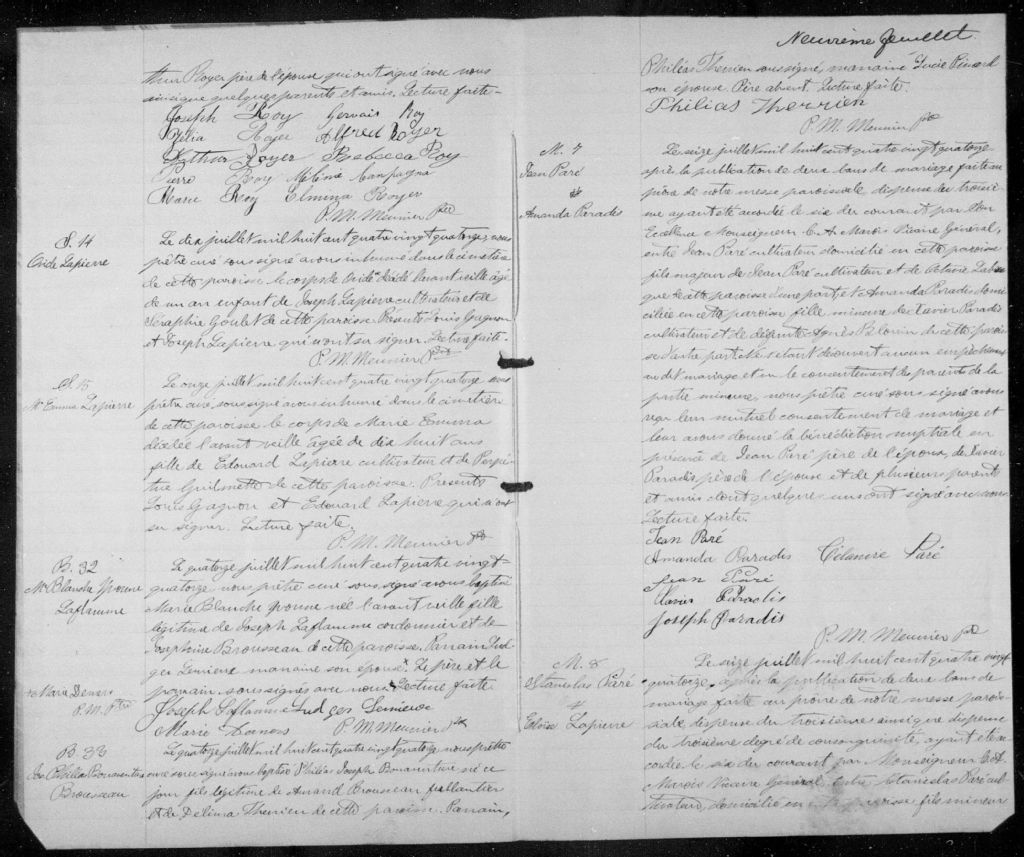 thur Royer père de l'épouse qui ont signé avec nous
ainsi que quelques parents et amis. Lecture faite.
Joseph Roy Gervais Roy
Délia Royer Alfred Royer
Arthur Royer Rebecca Roy
Pierre Roy Mélina Campagna
Marie Roy Elmina Royer
P. M. Meunier Ptre
S. 14
Ovide Lapierre
Le dix juillet mil huit cent quatre vingt quatorze, nous
prêtre curé soussigné avons inhumé dans le cimetière
de cette paroisse le corps de Ovide décédé l'avant veille âgé
de un an enfant de Joseph Lapierre cultivateur et de
Séraphie Goulet de cette paroisse. Présents Louis Gagnon
et Joseph Lapierre qui n'ont su signer. Lecture faite.
P. M. Meunier Ptre
S. 15
M. Emma Lapierre
Le onze juillet mil huit cent quatre vingt quatorze nous
prêtre curé soussigné avons inhumé dans le cimetière
de cette paroisse le corps de Marie Emma
décédée l'avant veille âgée de dix huit ans
fille de Edouard Lapierre cultivateur et de Perpé-
tue Guilmette de cette paroisse. Présents
Louis Gagnon et Edouard Lapierre qui n'ont
su signer. Lecture faite.
P. M. Meunier Ptre
B. 32
Me Blanche Yvonne
Laflamme
Le quatorze juillet mil huit cent quatre vingt-
quatorze nous prêtre curé soussigné avons baptisé
Marie Blanche Yvonne née l'avant veille fille
légitime de Joseph Laflamme cordonnier et de
Joséphine Brousseau de cette paroisse. Parrain
Lemieux marraine son épouse. Le père et le
parrain soussignés avec nous. Lecture faite
+ Marie Demers
P. M. Ptre
Joseph Laflamme Lemieux
Marie Demers P. M. Meunier Ptre
B. 33
Jos Philias Bonaventure
Brousseau
Le quatorze juillet mil huit cent quatre vingt quatorze nous prêtre
curé soussigné avons baptisé Philias Joseph Bonaventure né ce
jour fils légitime de Amand Brousseau ferblantier
et de Delima Therrien de cette paroisse. Parrain,
Neuvième feuillet
Philias Therrien soussigné, marraine Lucie Picard
son épouse. Père absent. Lecture faite.
Philias Therrien
P. M. Meunier Ptre
M. 7
Jean Paré
&
Amanda Paradis
Le seize juillet mil huit cent quatre vingt quatorze
après la publication de deux bans de mariage faite au
prône de notre messe paroissiale dispense du troisiè-
me ayant été accordée le six du courant par Son
Excellence Monseigneur C. A. Marois Vicaire Général,
entre Jean Paré cultivateur domicilié en cette paroisse
fils majeur de Jean Paré cultivateur et de Octavie
que de cette paroisse d'une part, et Amanda Paradis domi-
ciliée en cette paroisse fille mineure de Xavier Paradis
cultivateur et de défunte Agnès Blouin de cette parois-
se d'autre part; ne s'étant découvert aucun empêchement
au dit mariage et vu le consentement des parents de la
partie mineure, nous prêtre curé soussigné avons
reçu leur mutuel consentement de mariage et
leur avons donné la bénédiction nuptiale en
présence de Jean Paré père de l'époux, de Xavier
Paradis père de l'épouse et de plusieurs parents
et amis dont quelques uns ont signé avec nous.
Lecture faite.
Jean Paré
Amanda Paradis Célanire Paré
Jean Paré
Xavier Paradis
Joseph Paradis
P. M. Meunier Ptre
M. 8
Stanislas Paré
&
Eloïse Lapierre
Le seize juillet mil huit cent quatre vingt
quatorze, après la publication de deux bans de
mariage faite au prône de notre messe parois-
siale dispense du troisième ainsi que dispense
du troisième degré de consanguinité, ayant été ac-
cordée le six du courant par Monseigneur C. A.
Marois Vicaire Général. Entre Stanislas Paré cul-
tivateur, domicilié en cette paroisse fils mineur